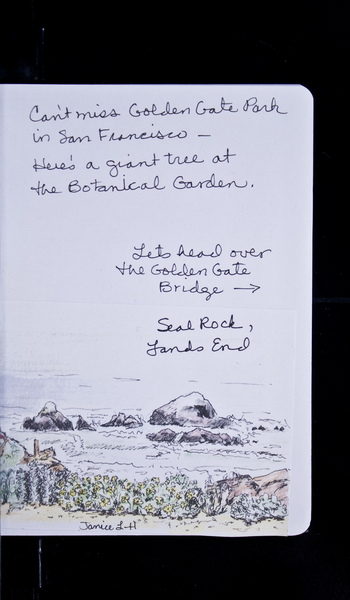 Can't miss Golden Gate Park
in San Francisco —
Here's a giant tree at
the Botanical Garden.
Lets head over
the Golden Gate
Bridge →
Seal Rock,
Lands End
Janice L-H